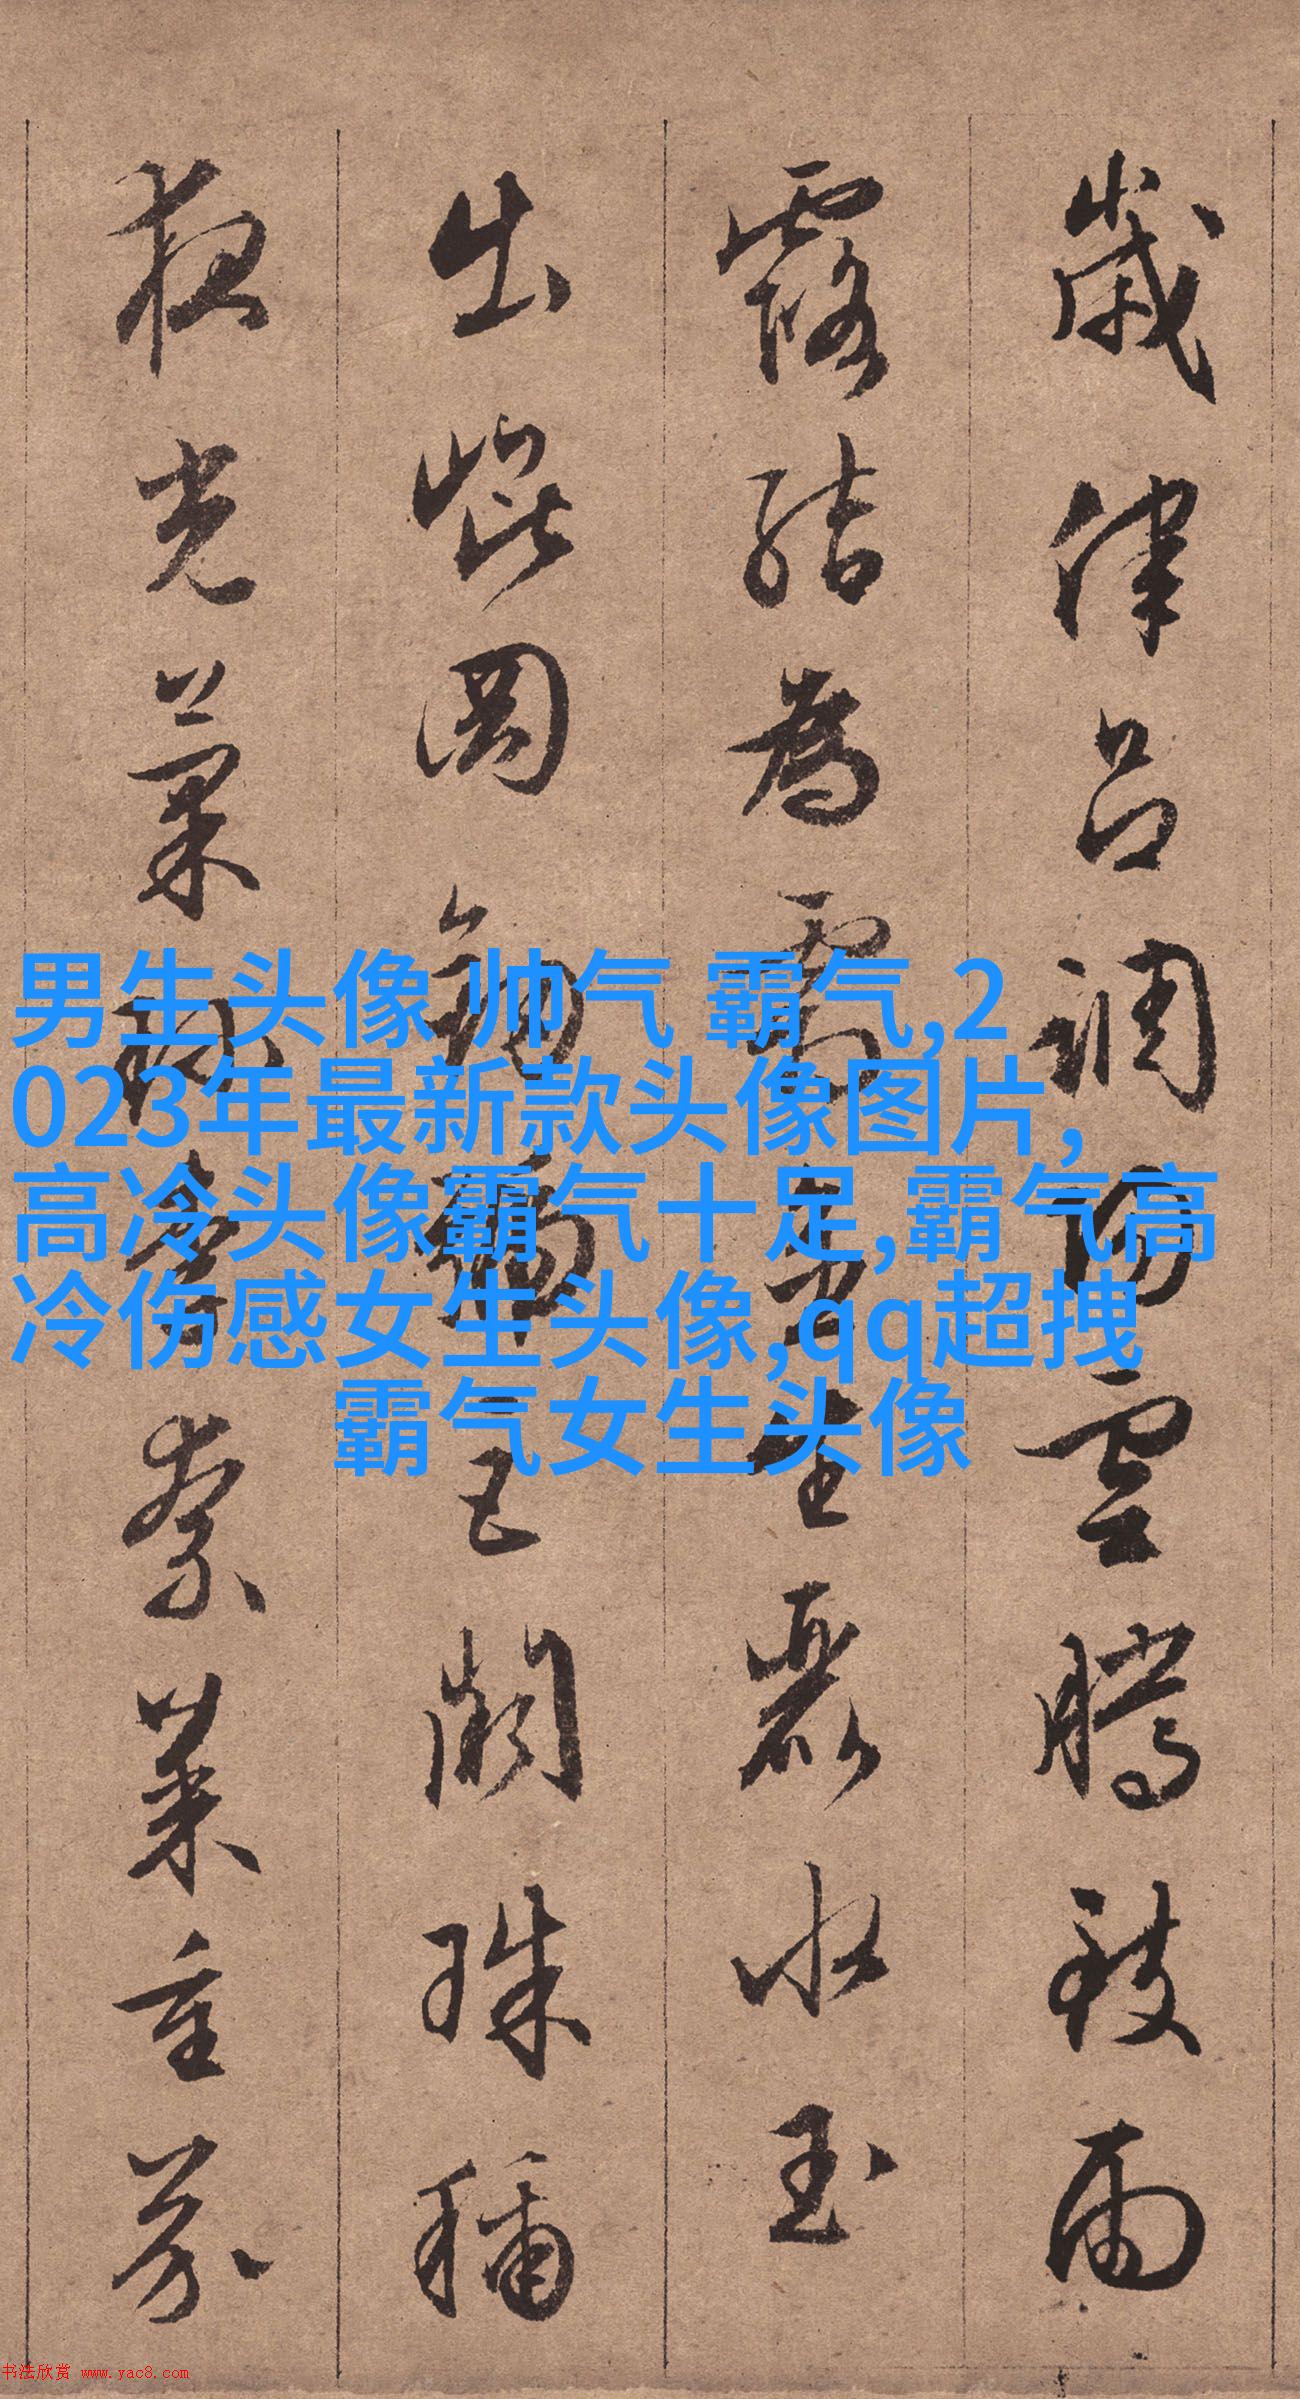 歲律呂調陽雲騰致雨
露結為霜金生麗水玉
出崑岡劍號巨闕珠稱
夜光菓珍李柰菜重芥
男生头像 帅气 霸气,2
023年最新款头像图片,
高冷头像霸气十足,霸气高
冷伤感女生头像,qq超拽
霸气女生头像
书法欣赏 www.yac8.com